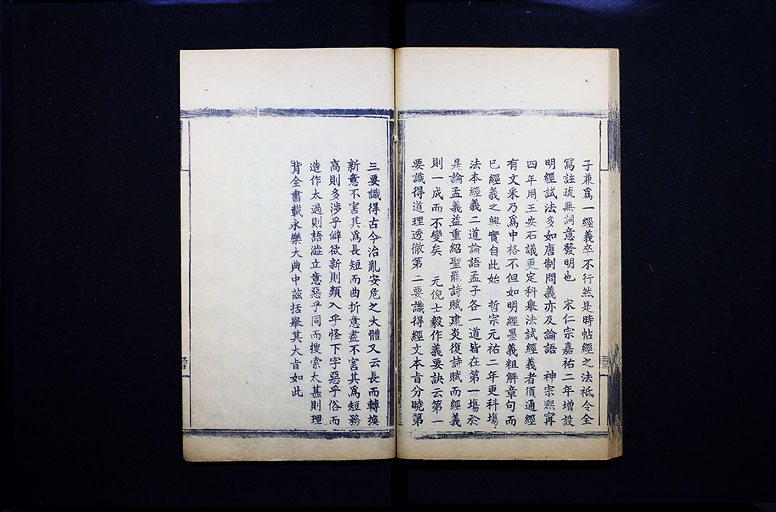 子兼爲一經義卒不行然是時帖經之法祗令全
寫註疏無詞意發明也　宋仁宗嘉祐二年增設
明經試法多如唐制問義亦及論語　神宗熙寧
四年用王安石議更定科舉法試經義者須通經
有文采乃爲中格不但如明經墨義粗解章句而
已經義之興實自此始　哲宗元祐二年更科場
法本經義二道論語孟子各一道皆在第一場於
是論孟義益重紹聖罷詩賦建炎復詩賦而經義
則一成而不變矣　元倪士毅作義要訣云第一
要識得道理透徹第二要識得經文本旨分曉第
三要識得古今治亂安危之大體又云長而轉換
新意不害其爲長短而曲折意盡不害其爲短務
高則多涉乎僻欲新則類入乎怪下字惡乎俗而
造作太過則語澁立意惡乎同而搜索太甚則理
背全書載永樂大典中茲括舉其大旨如此